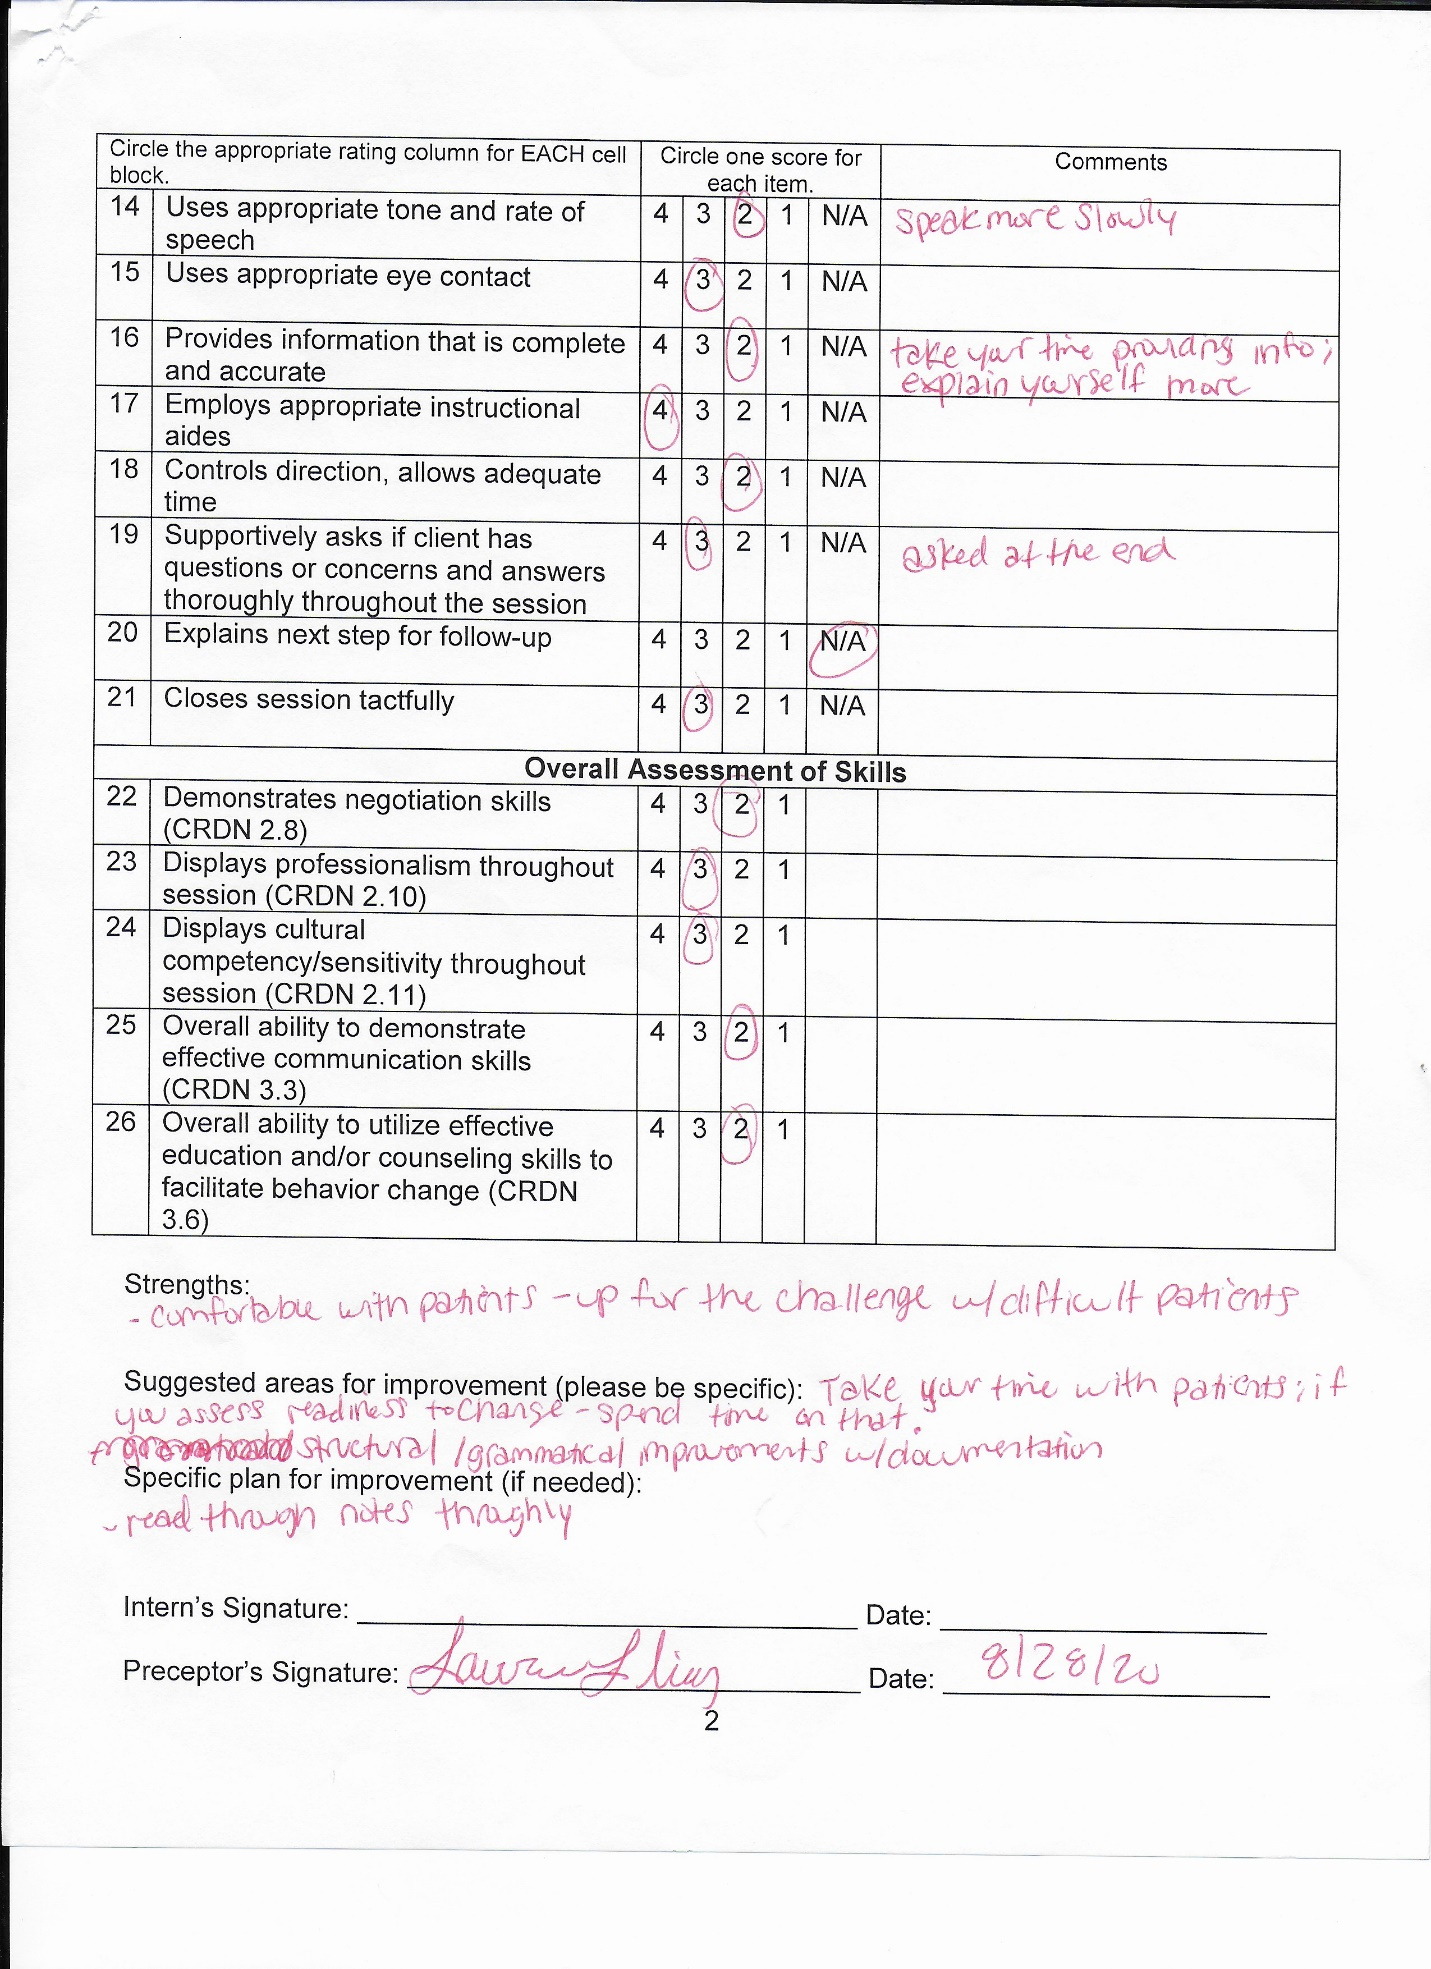 Circle the appropriate rating column for EACH cell
block.
Circle one score for
each item.
Comments
14 Uses appropriate tone and rate of
speech
4 3 2 1 N/A
speak more slowly
15 Uses appropriate eye contact
4 3 2 1 N/A
16 Provides information that is complete
and accurate
4 3 2 1 N/A
take your time providing info;
explain yourself more
17 Employs appropriate instructional
aides
4 3 2 1 N/A
18 Controls direction, allows adequate
time
4 3 2 1 N/A
19 Supportively asks if client has
questions or concerns and answers
thoroughly throughout the session
4 3 2 1 N/A
asked at the end
20 Explains next step for follow-up
4 3 2 1 N/A
21 Closes session tactfully
4 3 2 1 N/A
Overall Assessment of Skills
22 Demonstrates negotiation skills
(CRDN 2.8)
4 3 2 1
23 Displays professionalism throughout
session (CRDN 2.10)
4 3 2 1
24 Displays cultural
competency/sensitivity throughout
session (CRDN 2.11)
4 3 2 1
25 Overall ability to demonstrate
effective communication skills
(CRDN 3.3)
4 3 2 1
26 Overall ability to utilize effective
education and/or counseling skills to
facilitate behavior change (CRDN
3.6)
4 3 2 1
Strengths:
- comfortable with patients - up for the challenge w/difficult patients
Suggested areas for improvement (please be specific): Take your time with patients; if
you assess readiness to change - spend time on that.
structural /grammatical improvements w/documentation
Specific plan for improvement (if needed):
- read through notes throughly
Intern's Signature: Date:
Preceptor's Signature: Date: 8/28/20
2